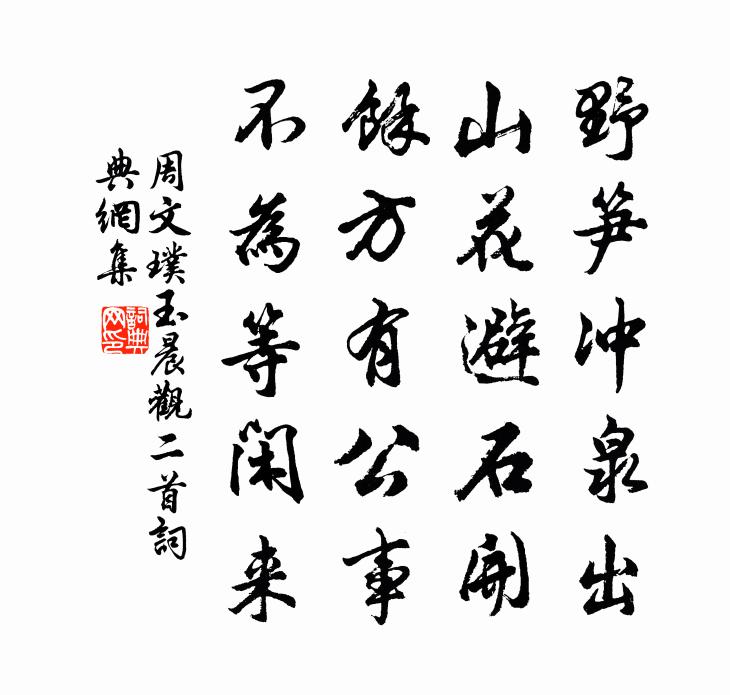 野笋冲泉出
山花避石開
餘方有公事
不為等閑来
周文璞玉晨觀二首詞
典網集
詞典
网印